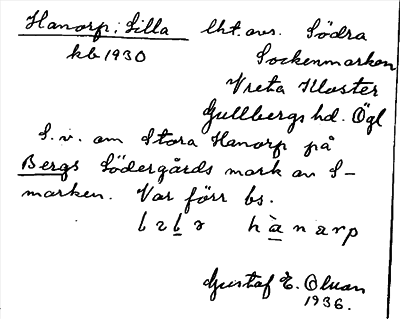 Hanorp, Lilla lht. avs. Södra
kb 1930 Sockenmarken
Vreta Kloster
Gullbergs hd. Ögl
S.v. om Stora Hanorp på
Bergs Södergårds mark av S-
marken. Var förr bs.
hanarp
Gustaf E. Olson
1936.